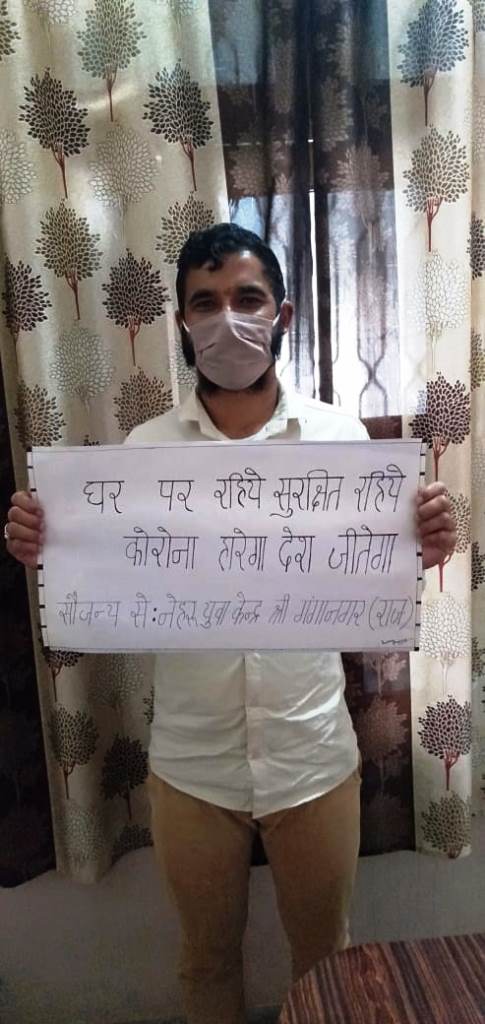 घर पर रहिये सुरक्षित रहिये
कोरोना हारेगा देश जीतेगा
सौजन्य से : नेहरू युवा केन्द्र श्री गंगानगर (राज.)